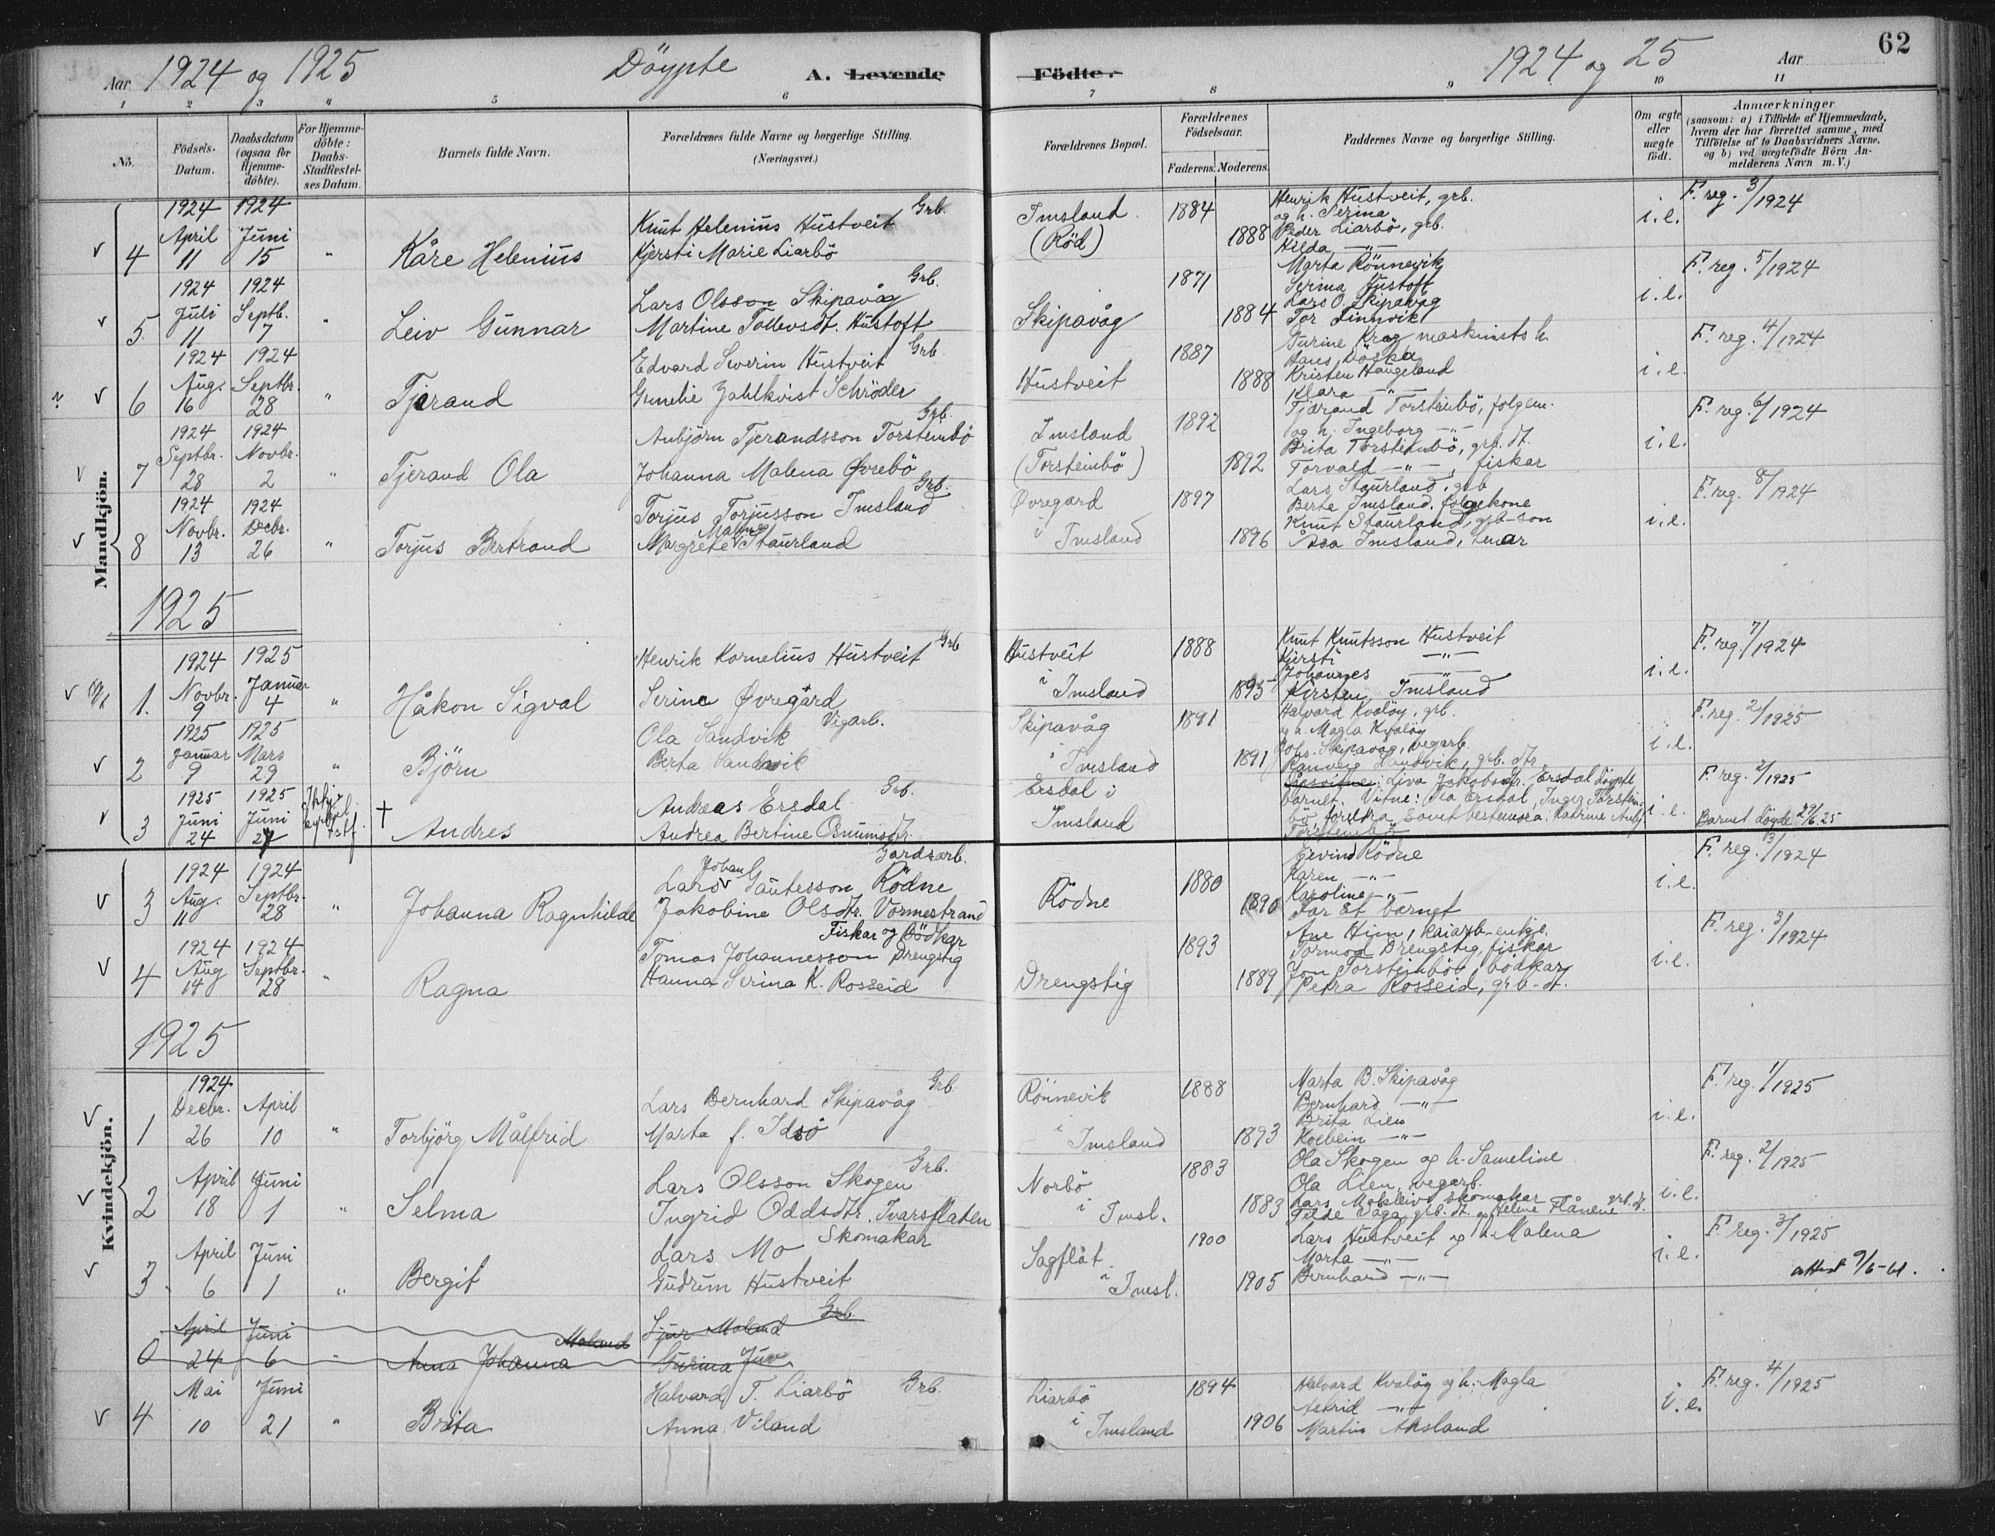 Aar 1924 og 1925 Döypte A. Levende Födte. 1924 og 25 Aar 62
1 2 3 4 5 6 7 8 9 10 11
No.
Födsels-Datum.
Daabsdatum (ogsaa for Hjemme-döbte).
For Hjemme-döbte: Daabs-Stadfæstel-ses Datum.
Barnets fulde Navn.
Forældrenes fulde Navne og borgerlige Stilling.
(Næringsvei.)
Forældrenes Bopæl.
Forældrenes Födselsaar.
Faderens. Moderens.
Faddernes Navne og borgerlige Stilling.
Om ægte eller uægte født.
Anmærkninger
(saasom: a) i Tilfælde af Hjemmedaab, hvem der har forrettet samme, med Tilföielse af to Daabsvidners Navne, og b) ved uægtefödte Börn An-melderens Navn m. V.)
Mandkjön.
4 1924 April 11 1924 Juni 15 " Kåre Helenius
Knut Helenius Hustveit Grb.
Kjersti Marie Liarbö
Imsland (Röd) 1884 1888
Henrik Hustveit, grb.
og h. Serina
Peder Liarbö, grb.
Hilda —"—
i.e. F. reg. 3/1924
5 1924 Juli 11 1924 Septb. 7 " Leiv Gunnar
Lars Olsson Skipavåg Grb.
Martine Tollevsdt. Hustoft
Skipavåg 1871 1884
Marta Rönnevik
Serina Hustoft
Lars O. Skipavåg
Tor
i.e. F. reg. 5/1924
6 1924 Aug. 16 1924 Septbr. 28 " Tjerand
Edvard Severin Hustveit Grb.
Gunelie Zahlkvist Schröder
Hustveit 1887 1888
Turine Krag maskinists h.
Hans
Kristen Haugeland
Klara —"—
i.e. F. reg. 4/1924
7 1924 Septbr. 28 1924 Novbr. 2 " Tjerand Ola
Anbjörn Tjerandsson Torsteinbö Grb.
Johanna Malena Øvrebö
Imsland (Torsteinbö) 1892 1892
Tjærand Torsteinbö, folgem.
og h. Ingeborg —"—
Brita Torsteinbö, grb. dt.
Torvald —"—, fiskar
i.e. F. reg. 6/1924
8 1924 Novbr. 13 1924 Decbr. 26 " Torjus Bertrand
Torjus Torjusson Imsland Grb.
Margrete Malena Staurland
Øvregård i Imsland 1897 1896
Lars Staurland, grb
Berte Imsland, folgekone
Knut Staurland, grb-son
Åsa Imsland,
i.e. F. reg. 8/1924
1925
1. 1924 Novbr. 9 1925 Januar 4 " Håkon Sigval
Henrik Kornelius Hustveit Grb
Serine Øvregård
Hustveit i Imsland 1888 1895
Knut Knutsson Hustveit
Kjersti —"—
Johannes
Kirsten Imsland
i.e. F. reg. 7/1924
2 1925 Januar 9 1925 Mars 29 " Björn
Ola Sandvik Vegarb.
Berta Sandvik
Skipavåg i Imsland 1891 1891
Halvard Kvalöy, grb.
og h. Magla Kvalöy
Johs. Skipavåg, vegarb.
Ranveig Sandvik, grb. dtr.
i.e. F. reg. 2/1925
3 1925 Juni 24 1925 Juni 27 † Andres
Andreas Ersdal Grb.
Andrea Bertine Osmunsdr.
Ersdal i Imsland
Liva Jakobsdr. Ersdal döypte
barnet. Vitne: Ola Ersdal, Inger Torstein-
bö, foreldra samt bestemora: Katrine
Torsteinbö
i.e. F. reg. 2/1925
Barnet döyde 29/6 25
3 1924 Aug. 11 1924 Septbr. 28 " Johanna Ragnhilde
Lars Johan Gautesson Rödne Gardsarb.
Jakobine Olsdtr. Vormestrand
Rödne 1880 1890
Eivind Rödne
Karen —"—
Karoline —"—
Far åt barnet
i.e. F. reg. 13/1924
4 1924 Aug 14 1924 Septbr. 28 " Ragna
Fiskar og Bödkar
Tomas Johannesson Drengstig
Hanna Serina K. Rosseid
Drengstig 1893 1889
Ane Hien, kaiarb-enkje.
Tormod Drengstig, fiskar
Jon Torsteinbö, bödkar
Petra Rosseid, grb-dt.
i.e. F. reg. 3/1924
Kvindekjön.
1925
1 1924 Decbr. 26 April 10 " Torbjörg Målfrid
Lars Bernhard Skipavåg Grb
Marta f. Idsö
Rönnevik i Imsland 1888 1893
Marta B. Skipavåg
Bernhard —"—
Brita Lien
Kolbein —"—
i.e. F. reg. 1/1925
2 April 18 Juni 1 " Selma
Lars Olsson Skogen Grb.
Ingrid Oddsdtr. Ivarsflaten
Norbö i Imsl. 1883 1883
Ola Skogen og h. Sameline
Ola Lien, vegarb.
Lars skomakar
Våga, grb. dt. og Helene Flånene grb. dt.
i.e. F. reg. 2/1925
3 April 6 Juni 1 " Bergit
Lars Mo Skomakar
Gudrun Hustveit
Sagflåt i Imsl. 1900 1905
Lars Hustveit og h. Malena
Marta —"—
Bernhard —"—
i.e. F. reg. 3/1925
attest 9/6-61.
0 April 24 Juni 6 " Anna Johanna Moland
Sjur Moland Grb.
Gurina Juv
4 Mai 10 Juni 21 " Brita
Halvard T. Liarbö Grb.
Anna Viland
Liarbö i Imsland 1894 1906
Halvard Kvalöy og h. Magla
Astrid —"—
Martin Aksland
i.e. F. reg. 4/1925